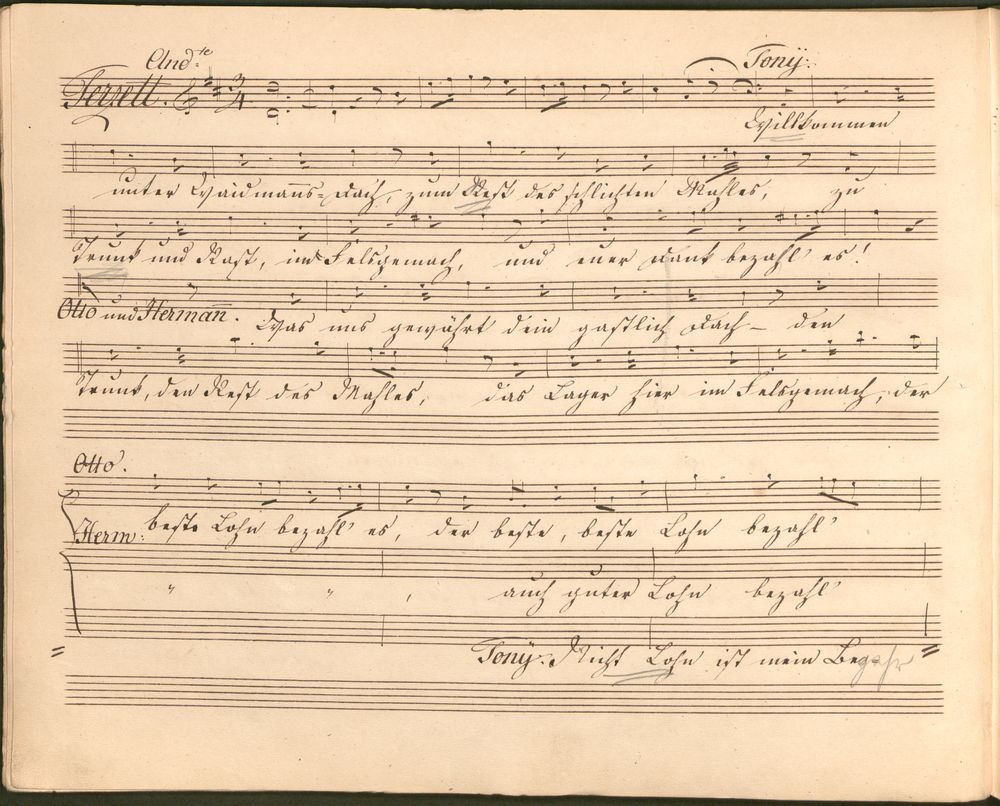 And:te
Tony:
Terzett.
Willkommen
unter Waidmanns=Dach, zum Rest des schlichten Mahles, zu
Trunk und Rast, im Felsgemach, und euer Dank bezahl' es!
Otto und Hermann. Was uns gewährt dein gastlich Dach – den
Trunk, den Rest des Mahles, das Lager hier im Felsgemach, der
Otto.
beste Lohn bezahl' es, der beste, beste Lohn bezahl'
Herm:
" " , auch guter Lohn bezahl'
Tony: Nicht Lohn ist mein Begehr